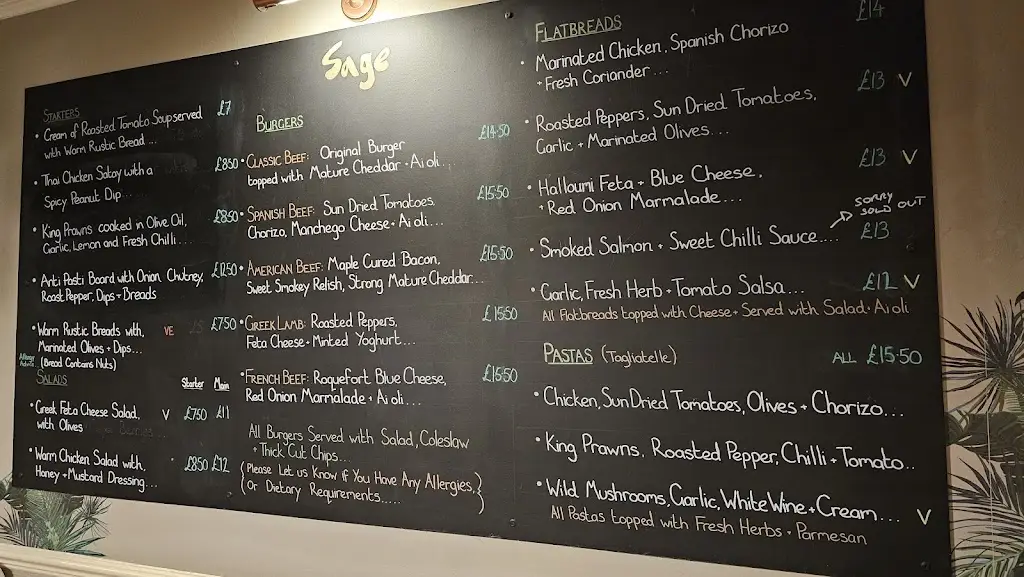 Sage
STARTERS
• Cream of Roasted Tomato Soup served £7
with Warm Rustic Bread ...
• Thai Chicken Satay with a £8.50
Spicy Peanut Dip......
• King Prawns cooked in Olive Oil, £8.50
Garlic, Lemon and Fresh Chilli....
• Anti Pasti Board with Onion Chutney, £12.50
Roast Pepper, Dips + Breads
• Warm Rustic Breads with, VE £7.50
Marinated Olives + Dips...
(Bread Contains Nuts)
SALADS
Starter Main
• Greek Feta Cheese Salad, V £7.50 £11
with Olives
• Warm Chicken Salad with, £8.50 £12
Honey + Mustard Dressing....
BURGERS
• CLASSIC BEEF: Original Burger £14.50
topped with Mature Cheddar + Aioli....
• SPANISH BEEF: Sun Dried Tomatoes, £15.50
Chorizo, Manchego Cheese + Aioli...
• AMERICAN BEEF: Maple Cured Bacon, £15.50
Sweet Smokey Relish, Strong Mature Cheddar...
• GREEK LAMB: Roasted Peppers, £15.50
Feta Cheese + Minted Yoghurt....
• FRENCH BEEF: Roquefort Blue Cheese, £15.50
Red Onion Marmalade + Aioli...
All Burgers Served with Salad, Coleslaw
+ Thick Cut Chips...
(Please Let us Know if You Have Any Allergies,
Or Dietary Requirements.....)
FLATBREADS
• Marinated Chicken, Spanish Chorizo £14
+ Fresh Coriander...
• Roasted Peppers, Sun Dried Tomatoes, £13 V
Garlic + Marinated Olives....
• Halloumi Feta + Blue Cheese, £13 V
+ Red Onion Marmalade....
SORRY
SOLD OUT
• Smoked Salmon + Sweet Chilli Sauce.... £13
• Garlic, Fresh Herb + Tomato Salsa... £12 V
All Flatbreads topped with Cheese + Served with Salad + Aioli
PASTAS (Tagliatelle) ALL £15.50
• Chicken, Sun Dried Tomatoes, Olives + Chorizo...
• King Prawns, Roasted Pepper, Chilli + Tomato..
• Wild Mushrooms, Garlic, White Wine + Cream.... V
All Pastas topped with Fresh Herbs + Parmesan